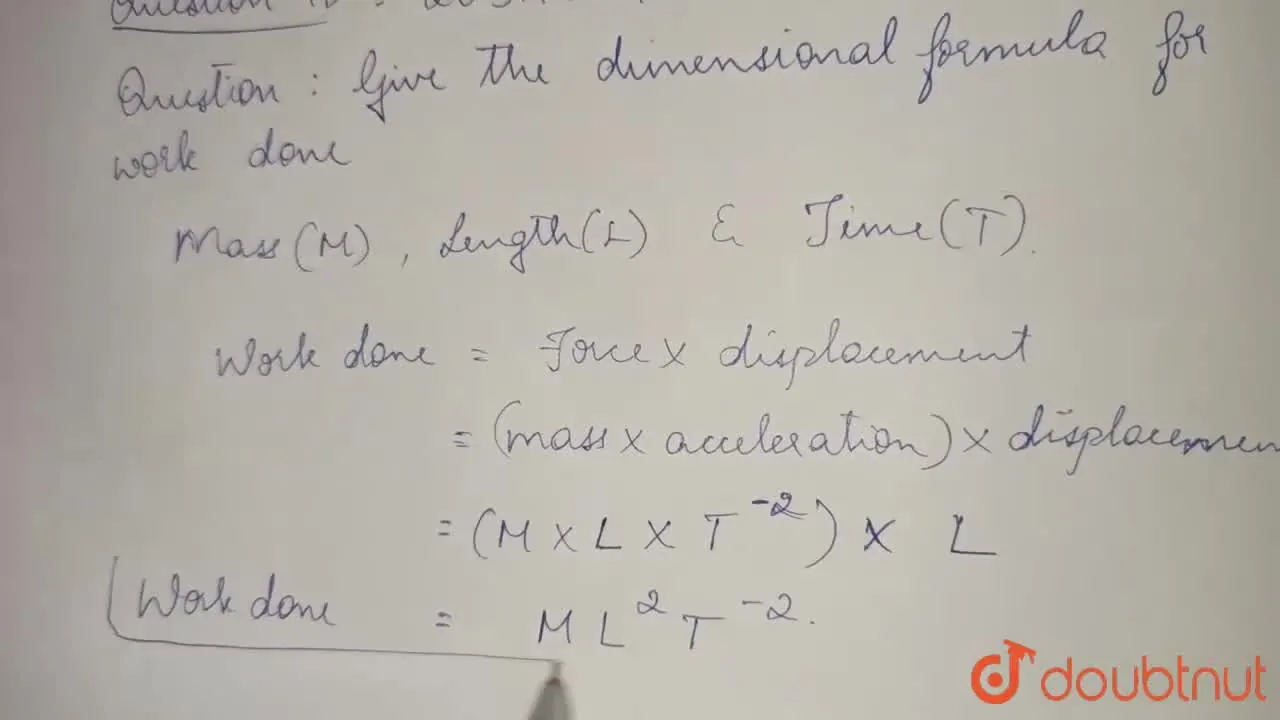 Question
Question : Give the dimensional formula for
work done
Mass (M) , Length (L) & Time (T).
Work done = Force x displacement
= (mass x acceleration) x displacemen
= (M x L x T⁻²) x L
Work done = M L² T⁻².
doubtnut